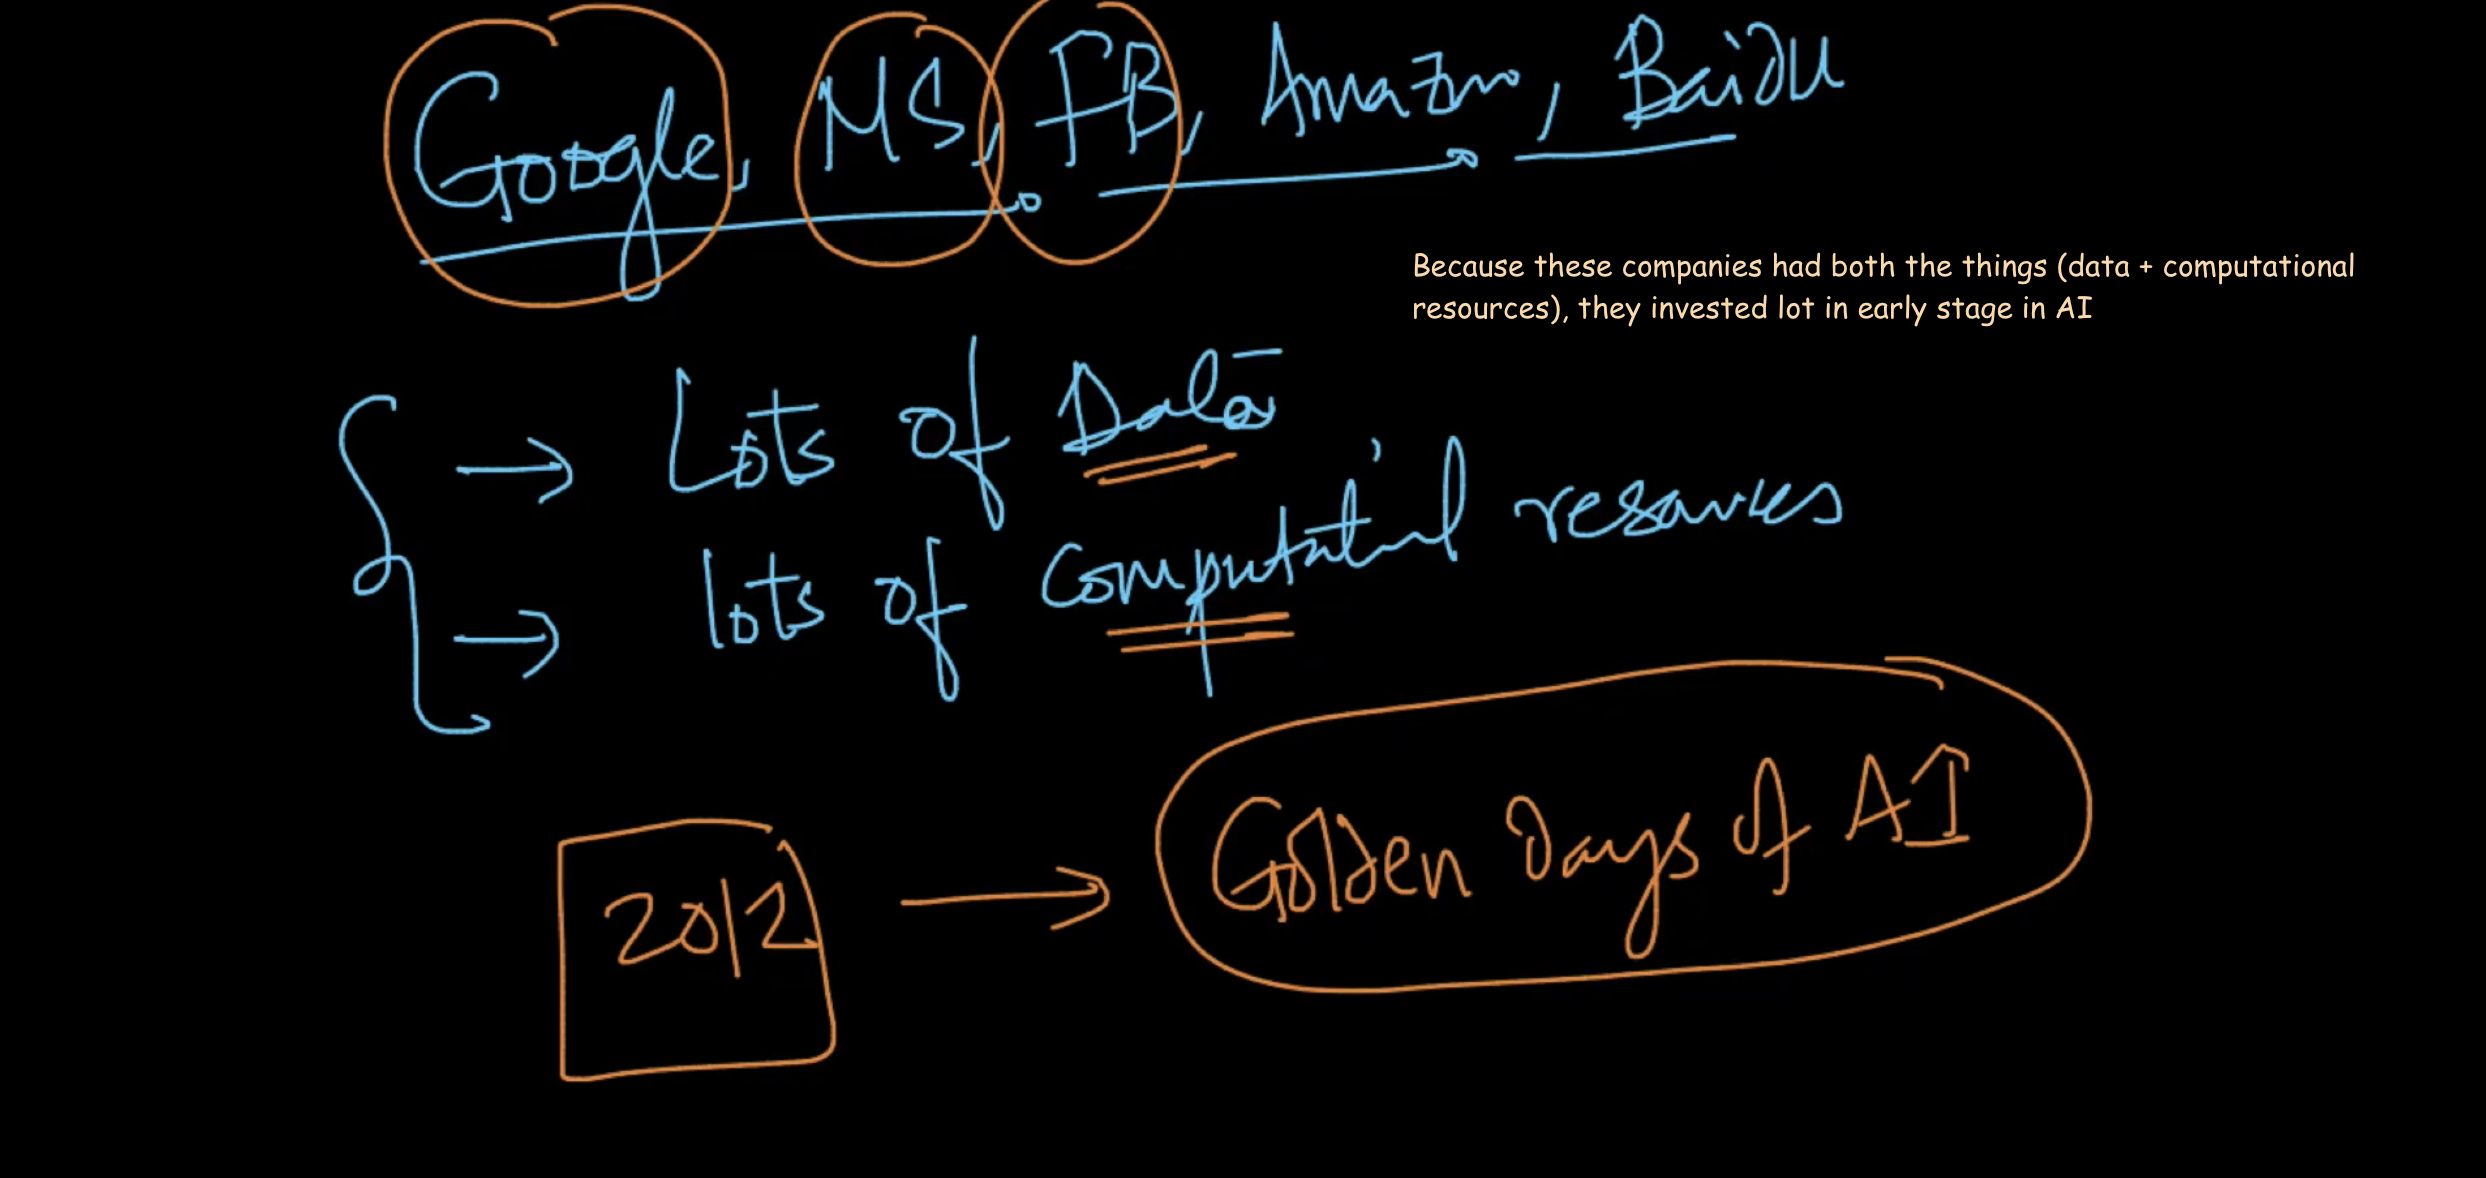 Google, MS, FB, Amazon, Baidu
Because these companies had both the things (data + computational
resources), they invested lot in early stage in AI
→ Lots of Data
→ lots of computational resources
2012 → Golden Days of AI